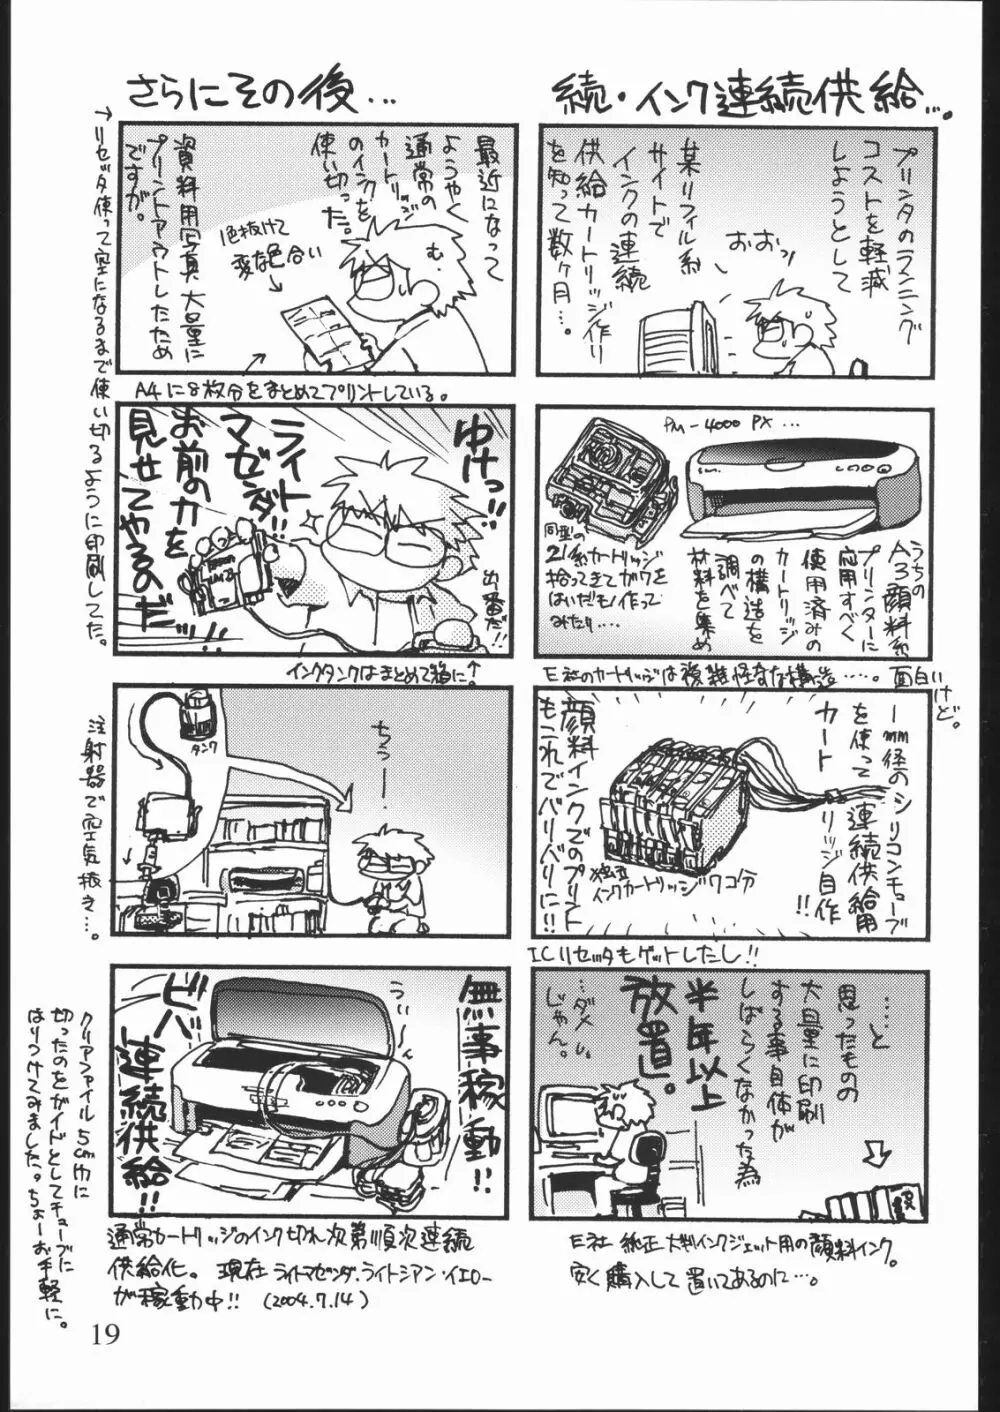 続・インク連続供給…。
プリンタのランニング
コストを軽減
しようとして
某リフィル系
サイトで
インクの連続
供給カートリッジ作り
を知って数ヶ月…。
おおっ
PM-4000PX…
同型の
21系カートリッジ
拾ってきてガワを
はいだモノ作って
みたり…
うちの
A3顔料系
プリンターに
応用すべく
使用済みの
カートリッジ
の構造を
調べて
材料を集め
E社のカートリッジは複雑怪奇な構造……。面白いけど。
1mm径のシリコンチューブ
を使って連続供給用
カートリッジ自作!!
独立
インクカートリッジ7コ分
顔料インクでのプリント
もこれでバリバリに!!
ICリセッタもゲットしたし!!
……と
思ったものの
大量に印刷
する事自体が
しばらくなかった為
半年以上
放置。
…ダメ
じゃん。
E社純正大判インクジェット用の顔料インク。
安く購入して置いてあるのに…。
さらにその後…
最近になって
ようやく
通常の
カートリッジ
のインクを
使い切った。
む
1色抜けて
変な色合い
資料用写真大量に
プリントアウトしたため
ですが。
→リセッタ使って空になるまで使い切るように印刷してた。
A4に8枚分をまとめてプリントしている。
ゆけっ!!
ライト
マゼンダ!!
お前の力を
見せてやるのだ!!
出番だ!!
インクタンクはまとめて箱に↑
タンク
ちゅー
注射器で空気抜き…。
無事稼動!!
うぃーん
ビバ
連続供給!!
クリアファイル5cm巾に
切ったのをガイドとしてチューブに
はりつけてみました。ちょーお手軽に。
通常カートリッジのインク切れ次第順次連続
供給化。現在ライトマゼンダ・ライトシアン・イエロー
が稼動中!!(2004.7.14)
19